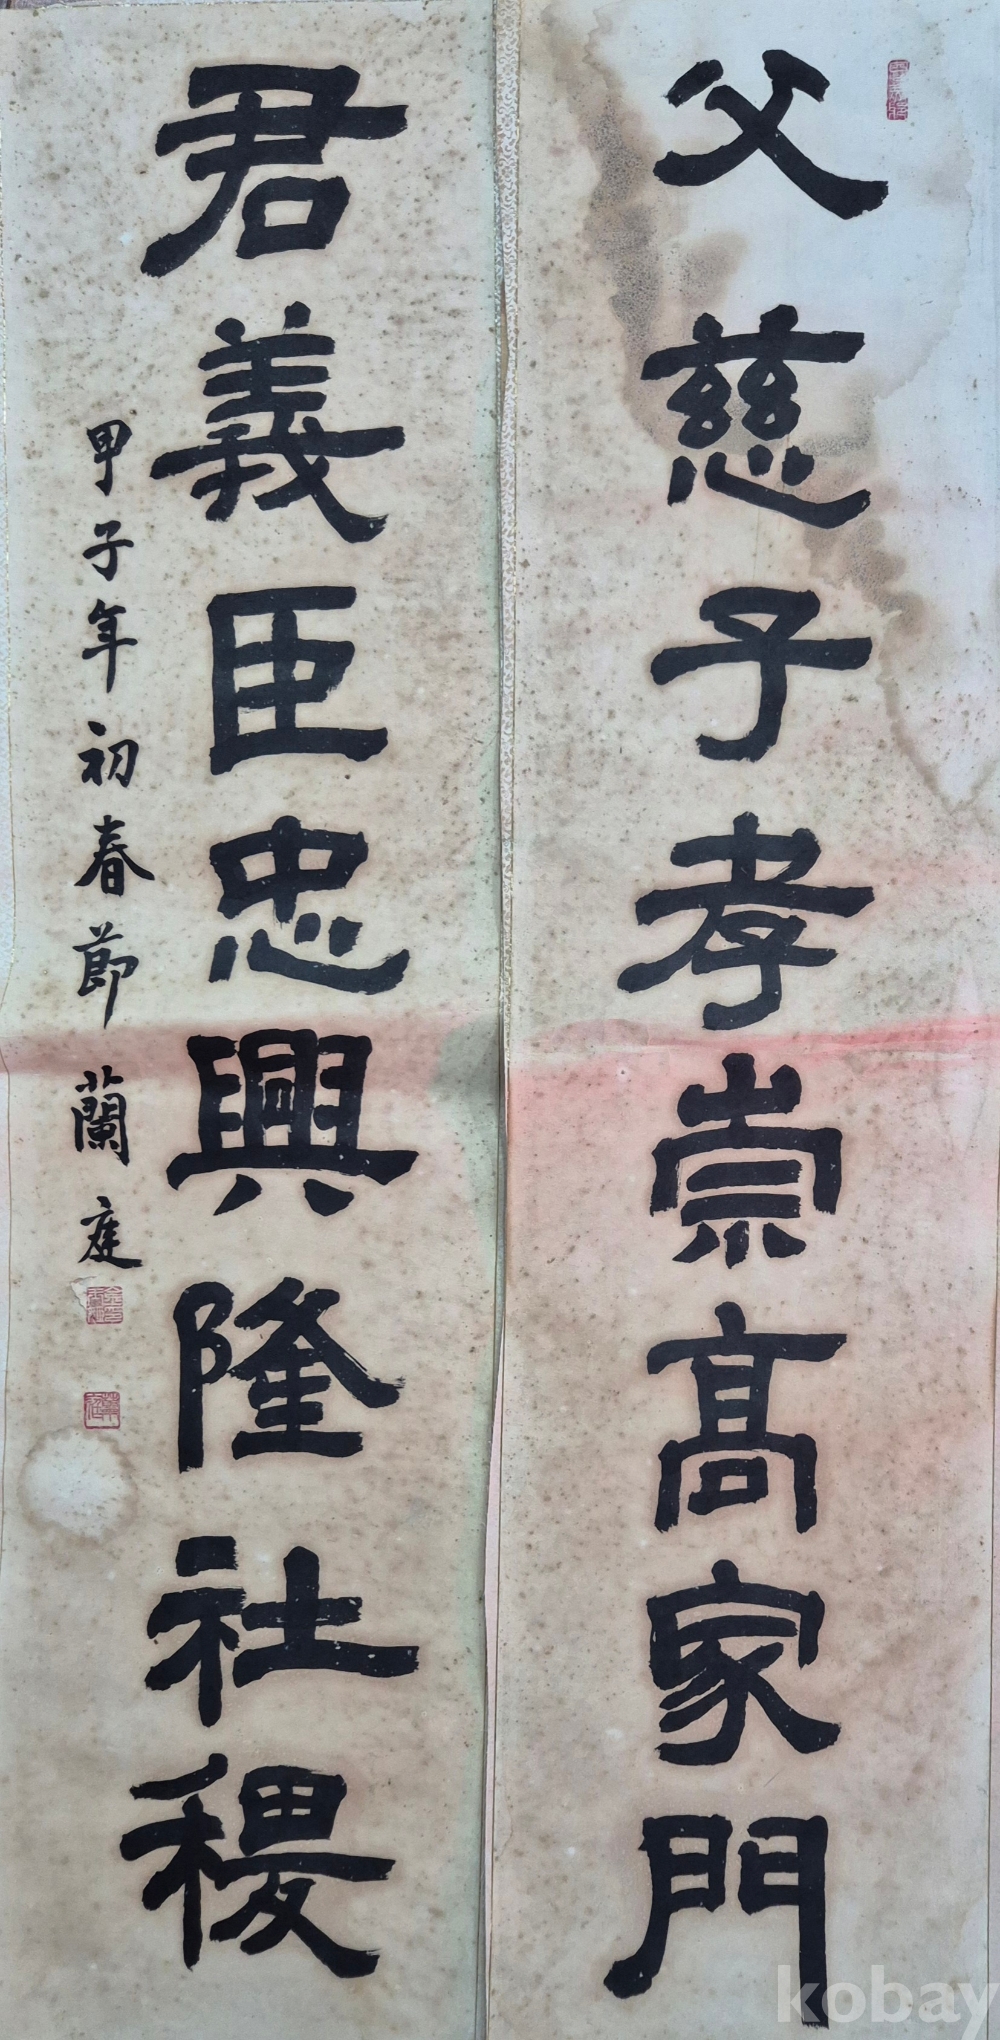 父慈子孝崇高家門
君義臣忠興隆社稷
甲子年初春節 蘭庭
kobay